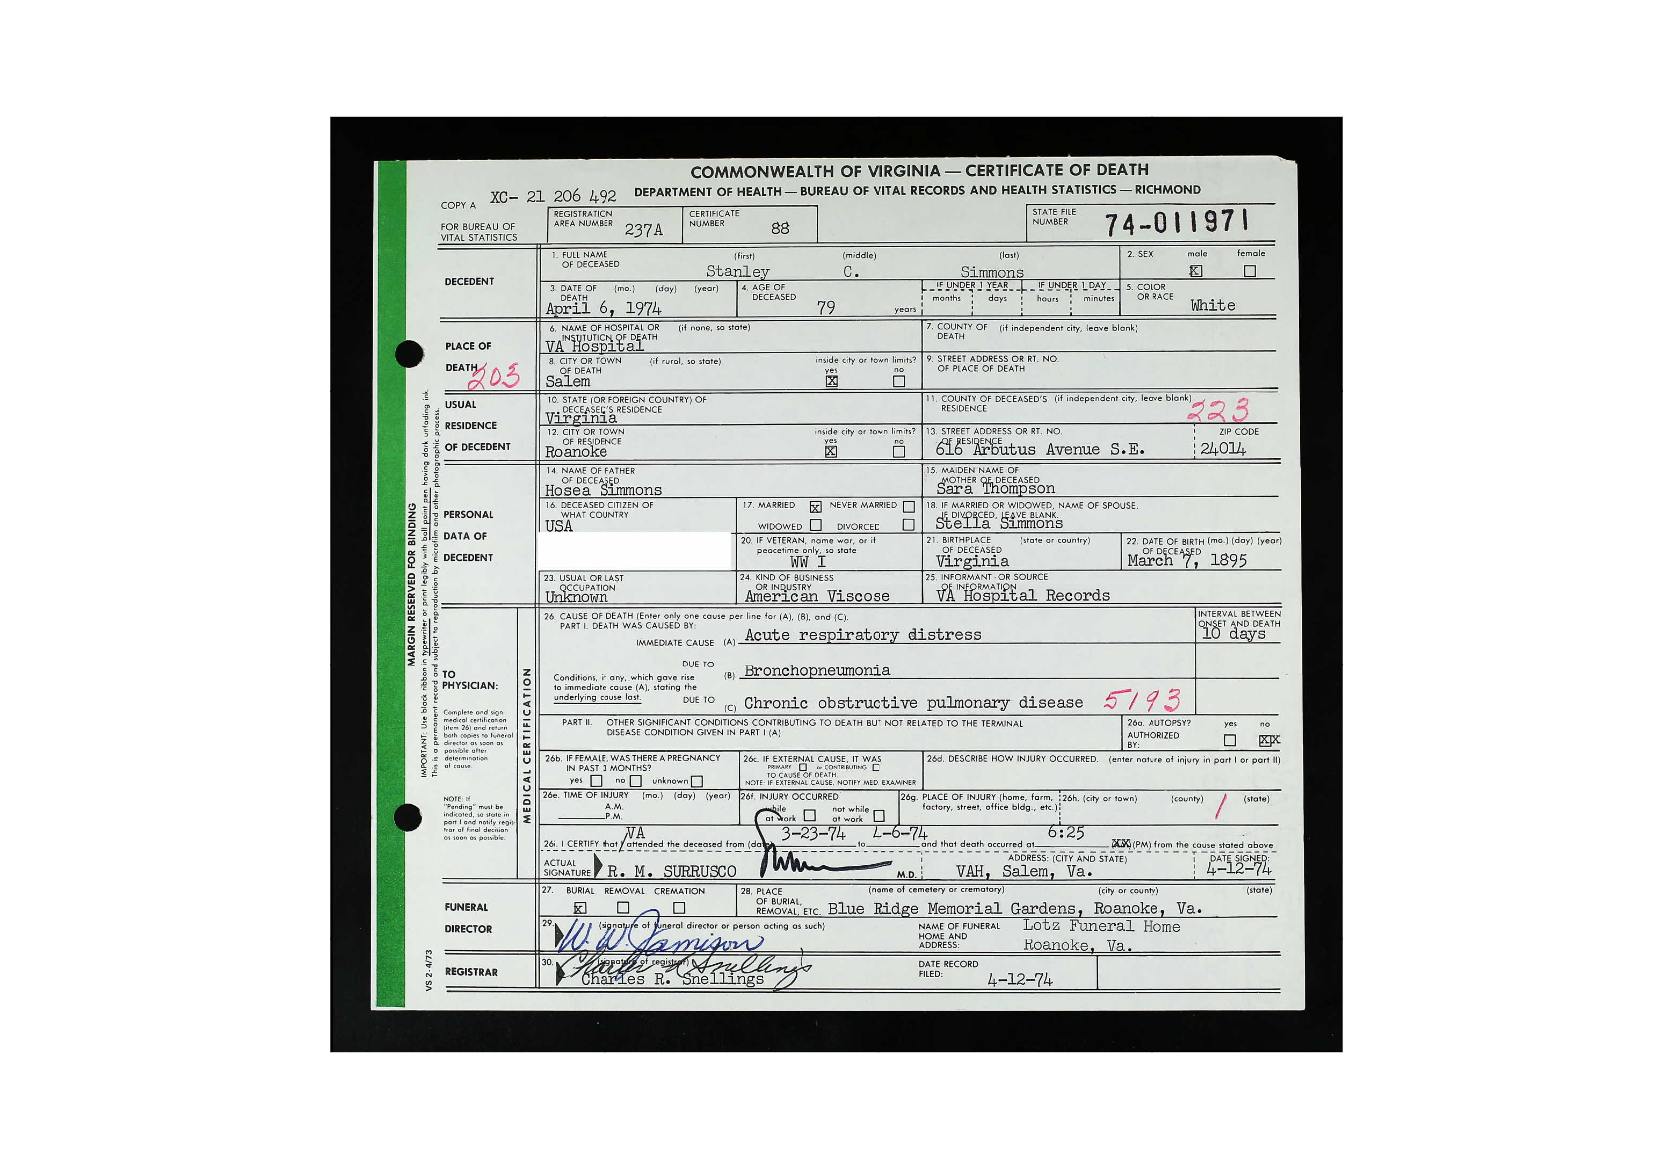 COMMONWEALTH OF VIRGINIA — CERTIFICATE OF DEATH
DEPARTMENT OF HEALTH — BUREAU OF VITAL RECORDS AND HEALTH STATISTICS — RICHMOND
COPY A XC- 21 206 492
FOR BUREAU OF VITAL STATISTICS
REGISTRATION AREA NUMBER 237A
CERTIFICATE NUMBER 88
STATE FILE NUMBER 74-011971
DECEDENT
1. FULL NAME OF DECEASED (first) (middle) (last)
Stanley C. Simmons
2. SEX male female
X
3. DATE OF DEATH (mo.) (day) (year)
April 6, 1974
4. AGE OF DECEASED
79 years
IF UNDER 1 YEAR IF UNDER 1 DAY
months days hours minutes
5. COLOR OR RACE White
PLACE OF DEATH
203
6. NAME OF HOSPITAL OR INSTITUTION OF DEATH (if none, so state)
VA Hospital
7. COUNTY OF DEATH (if independent city, leave blank)
8. CITY OR TOWN OF DEATH (if rural, so state)
Salem
inside city or town limits?
yes no
X
9. STREET ADDRESS OR RT. NO. OF PLACE OF DEATH
USUAL RESIDENCE OF DECEDENT
10. STATE (OR FOREIGN COUNTRY) OF DECEASED'S RESIDENCE
Virginia
11. COUNTY OF DECEASED'S RESIDENCE (if independent city, leave blank)
223
12. CITY OR TOWN OF RESIDENCE
Roanoke
inside city or town limits?
yes no
X
13. STREET ADDRESS OR RT. NO. OF RESIDENCE
616 Arbutus Avenue S.E.
ZIP CODE
24014
PERSONAL DATA OF DECEDENT
14. NAME OF FATHER OF DECEASED
Hosea Simmons
15. MAIDEN NAME OF MOTHER OF DECEASED
Sara Thompson
16. DECEASED CITIZEN OF WHAT COUNTRY
USA
17. MARRIED X NEVER MARRIED
WIDOWED DIVORCED
18. IF MARRIED OR WIDOWED, NAME OF SPOUSE. IF DIVORCED, LEAVE BLANK.
Stella Simmons
20. IF VETERAN, name war, or if peacetime only, so state
WW I
21. BIRTHPLACE OF DECEASED (state or country)
Virginia
22. DATE OF BIRTH OF DECEASED (mo.) (day) (year)
March 7, 1895
23. USUAL OR LAST OCCUPATION
Unknown
24. KIND OF BUSINESS OR INDUSTRY
American Viscose
25. INFORMANT OR SOURCE OF INFORMATION
VA Hospital Records
MARGIN RESERVED FOR BINDING
IMPORTANT: Use black ribbon in typewriter or print legibly with ball point pen having dark unfading ink.
This is a permanent record and subject to reproduction by microfilm and other photographic process.
TO PHYSICIAN:
Complete and sign medical certification (item 26) and return both copies to funeral director as soon as possible after determination of cause.
NOTE: If "Pending" must be indicated, so state in part I and notify registrar of final decision as soon as possible.
MEDICAL CERTIFICATION
26. CAUSE OF DEATH (Enter only one cause per line for (A), (B), and (C).
PART I. DEATH WAS CAUSED BY:
INTERVAL BETWEEN ONSET AND DEATH
IMMEDIATE CAUSE (A) Acute respiratory distress
10 days
DUE TO
(B) Bronchopneumonia
Conditions, if any, which gave rise to immediate cause (A), stating the underlying cause last.
DUE TO
(C) Chronic obstructive pulmonary disease 5193
PART II. OTHER SIGNIFICANT CONDITIONS CONTRIBUTING TO DEATH BUT NOT RELATED TO THE TERMINAL DISEASE CONDITION GIVEN IN PART I (A)
26a. AUTOPSY? yes no
AUTHORIZED BY: XX
26b. IF FEMALE, WAS THERE A PREGNANCY IN PAST 3 MONTHS?
yes no unknown
26c. IF EXTERNAL CAUSE, IT WAS
PRIMARY or CONTRIBUTING
TO CAUSE OF DEATH.
NOTE: IF EXTERNAL CAUSE, NOTIFY MED. EXAMINER
26d. DESCRIBE HOW INJURY OCCURRED. (enter nature of injury in part I or part II)
26e. TIME OF INJURY (mo.) (day) (year)
A.M.
P.M.
26f. INJURY OCCURRED
while at work not while at work
26g. PLACE OF INJURY (home, farm, factory, street, office bldg., etc.)
26h. (city or town) (county) (state)
VA 3-23-74 4-6-74 6:25
26i. I CERTIFY that attended the deceased from to and that death occurred at XX (PM) from the cause stated above
ACTUAL SIGNATURE R. M. SURRUSCO M.D.
ADDRESS: (CITY AND STATE)
VAH, Salem, Va.
DATE SIGNED:
4-12-74
FUNERAL DIRECTOR
27. BURIAL REMOVAL CREMATION
X
28. PLACE OF BURIAL, REMOVAL, ETC. (name of cemetery or crematory) (city or county) (state)
Blue Ridge Memorial Gardens, Roanoke, Va.
29. (signature of funeral director or person acting as such)
W. W. Jamison
NAME OF FUNERAL HOME AND ADDRESS:
Lotz Funeral Home
Roanoke, Va.
REGISTRAR
30. (signature of registrar)
Charles R. Snellings
Charles R. Snellings
DATE RECORD FILED:
4-12-74
VS 2-4/73